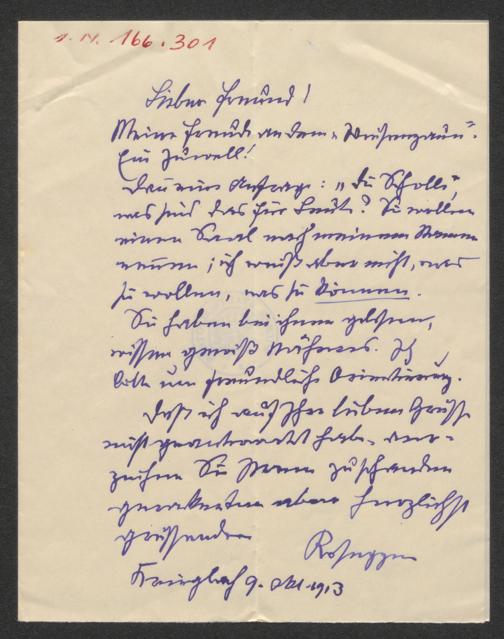 I.N. 166.301
Lieber Freund!
Meine Freude an dem „Weisenzaun“.
Ein Juwell!
Dan eine Anfrage: „Die Scholle“,
was sind das für Leute? Sie wollen
einen Saal nach meinem Namen
nennen; ich weiß aber nicht, was
sie wollen, was sie können.
Sie haben bei ihnen gelesen,
wissen gewiß Näheres. Ich
bitte um freundliche Orientierung.
Daß ich auf Ihre lieben Grüsse
nicht geantwortet habe, ver-
zeihen Sie Ihrem
aber herzlichst
grüssenden
Rosegger
Krieglach 9. Okt. 1913